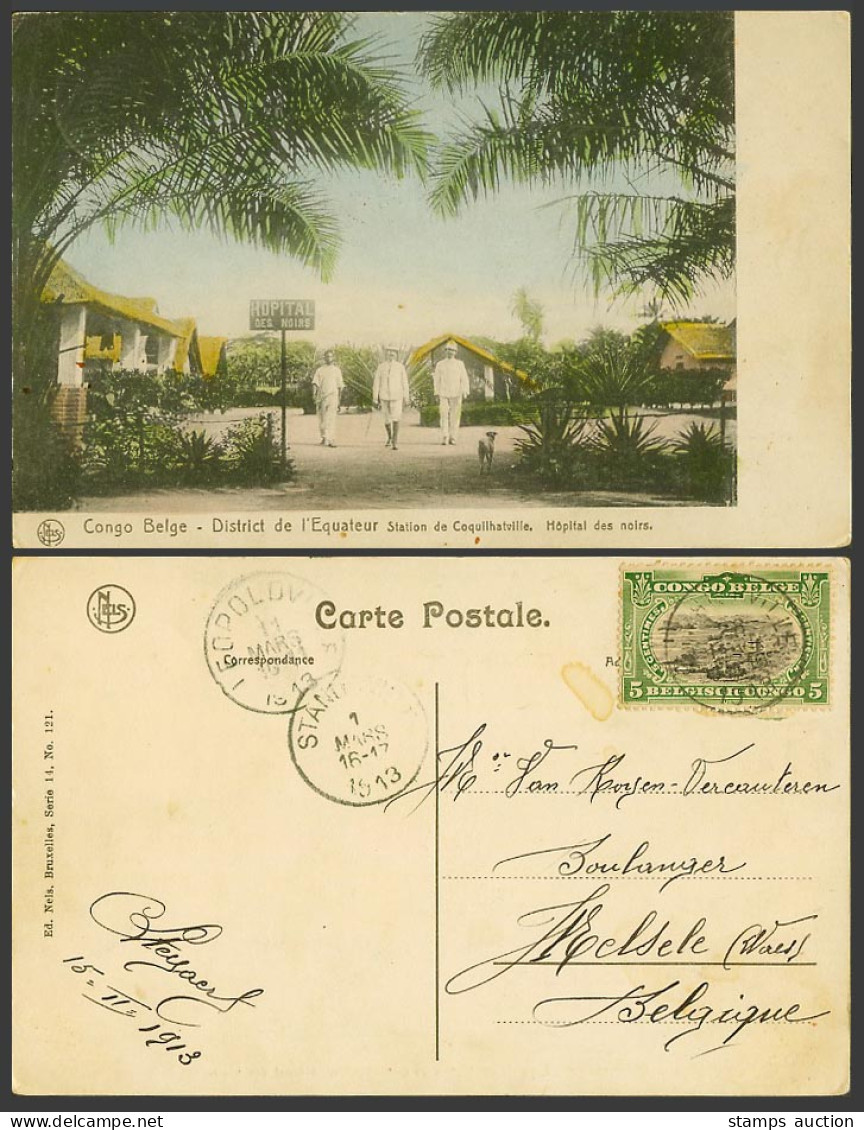 HOPITAL
DES NOIRS
NELS
Congo Belge - District de l'Equateur Station de Coquilhatville. Hôpital des noirs.
NELS
Carte Postale.
Correspondance
LEOPOLDV
11
MARS
1913
STAN
1
MARS
16-17
1913
CONGO BELGE
5 CENTIMES
5 BELGISCH CONGO 5
Ed. Nels, Bruxelles, Serie 14, No. 121.
Mr Van Royen-Vercauteren
Boulanger
Melsele (Waes)
Belgique
15-II-1913
stamps auction